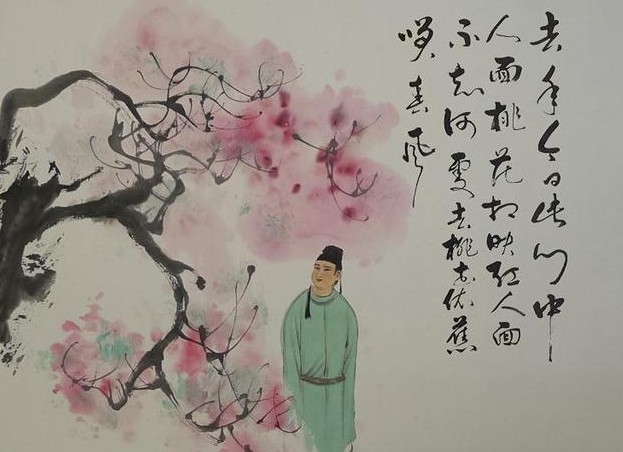 去年今日此门中
人面桃花相映红人面
不知何處去桃花依舊
咲春風